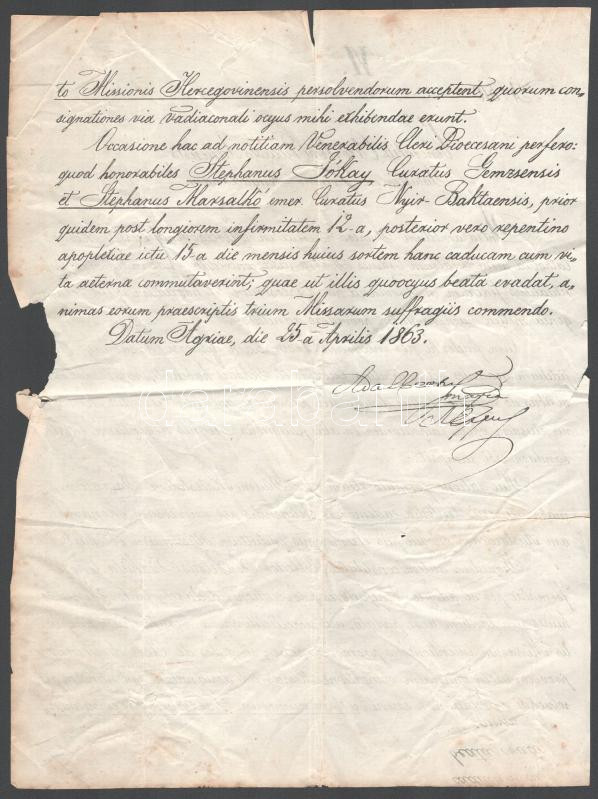 to Missionis Hercegovinensis persolvendorum acceptent, quorum con„
signationes via Vadiaconali ocyus mihi exhibendae erunt.
Occasione hac ad notitiam Venerabilis Cleri Dioecesani perfero:
quod honorabiles Stephanus Jókay Curatus Gemzsensis
et Stephanus Marsalkó emer. Curatus Nyir Baktaensis, prior
quidem post longiorem infirmitatem 12-a, posterior vero repentino
apoplexiae ictu 15-a die mensis huius sortem hanc caducam cum vi„
ta aeterna commutaverint; quae ut illis quoocyus beata evadat, a„
nimas eorum praescriptis trium Missarum suffragiis commendo.
Datum Agriae, die 25-a Aprilis 1863.